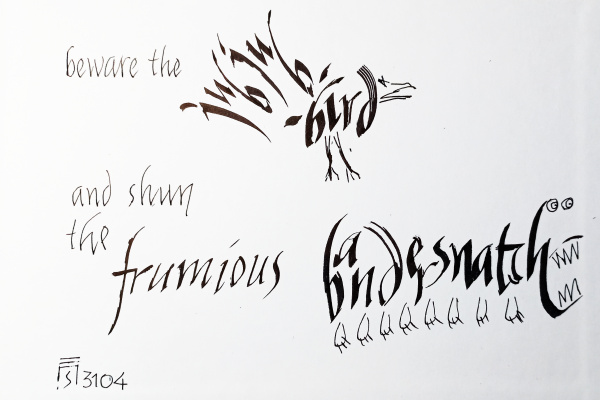 beware the jubjub-bird
and shun
the frumious bandersnatch
3104